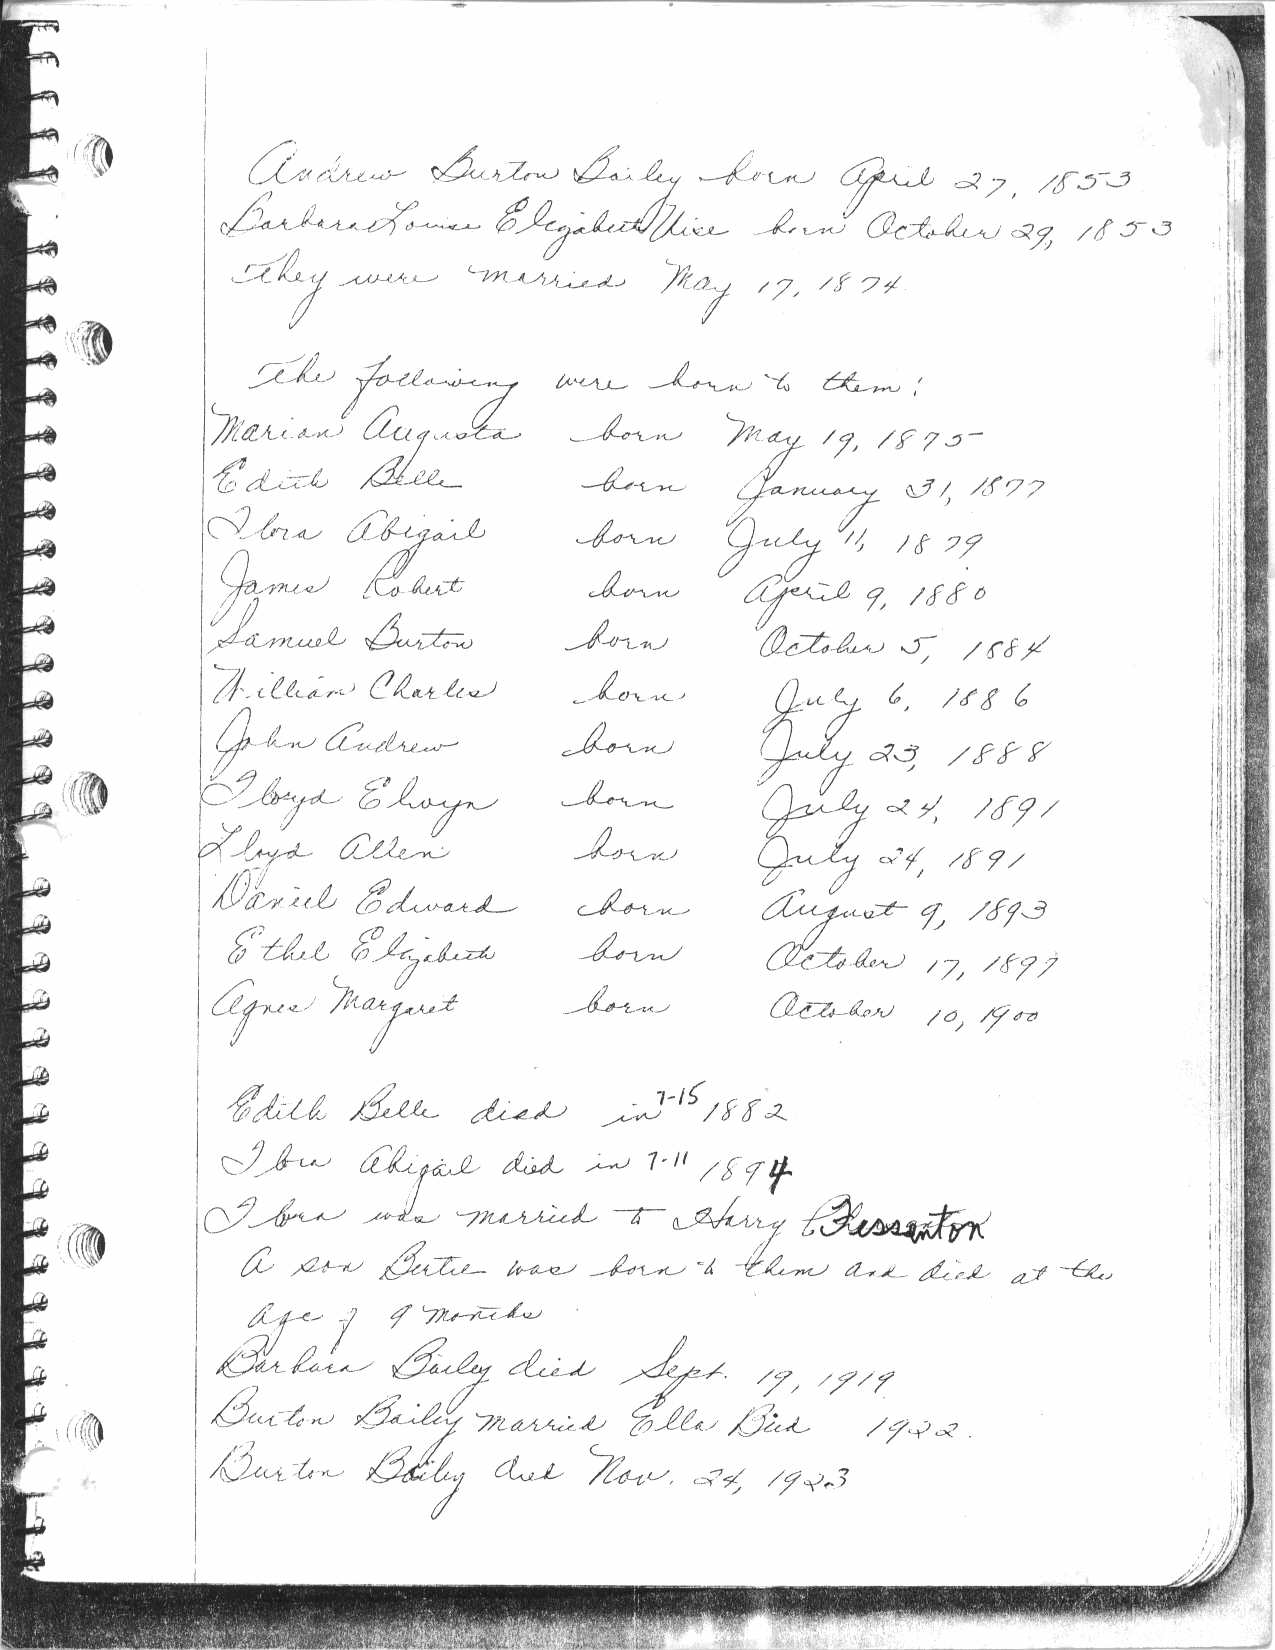 Andrew Burton Bailey born April 27, 1853
Barbara Louise Elizabeth Vise born October 29, 1853
They were married May 17, 1874
The following were born to them:
Marian Augusta born May 19, 1875
Edith Belle born January 31, 1877
Flora Abigail born July 11, 1879
James Robert born April 9, 1880
Samuel Burton born October 5, 1884
William Charles born July 6, 1886
John Andrew born July 23, 1888
Floyd Elwyn born July 24, 1891
Lloyd Allen born July 24, 1891
Daniel Edward born August 9, 1893
Ethel Elizabeth born October 17, 1897
Agnes Margaret born October 10, 1900
Edith Belle died in 7-15 1882
Flora Abigail died in 7-11 1894
Flora was married to Harry
A son Bertie was born to them and died at the
age of 9 months
Barbara Bailey died Sept. 19, 1919
Burton Bailey married Ella Bird 1922.
Burton Bailey died Nov. 24, 1923